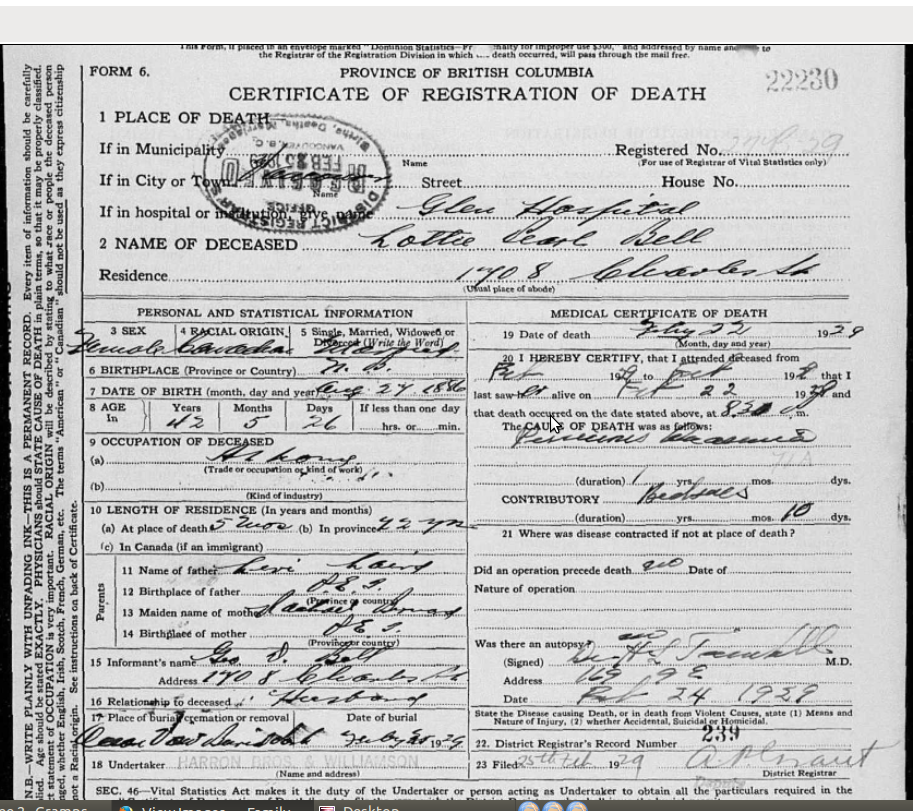 This Form, if placed in an envelope marked "Dominion Statistics—Fr nalty for improper use $300," and addressed by name and to
the Registrar of the Registration Division in which death occurred, will pass through the mail free.
FORM 6. PROVINCE OF BRITISH COLUMBIA 22230
CERTIFICATE OF REGISTRATION OF DEATH
1 PLACE OF DEATH
If in Municipality Name Registered No.
(For use of Registrar of Vital Statistics only)
If in City or Town Name Street House No.
If in hospital or institution, give name Glen Hospital
2 NAME OF DECEASED Lottie Pearl Bell
Residence 1708 Charles St
(Usual place of abode)
DISTRICT REGISTRAR'S OFFICE
RECEIVED
FEB 25 1929
VANCOUVER, B. C.
Births, Deaths, Marriages
PERSONAL AND STATISTICAL INFORMATION
3 SEX 4 RACIAL ORIGIN 5 Single, Married, Widowed or
Divorced (Write the Word)
Female Canadian Married
6 BIRTHPLACE (Province or Country) N. B.
7 DATE OF BIRTH (month, day and year) Aug. 27 1886
8 AGE In Years Months Days If less than one day
42 5 26 hrs. or min.
9 OCCUPATION OF DECEASED
(a) At home
(Trade or occupation or kind of work)
(b)
(Kind of industry)
10 LENGTH OF RESIDENCE (In years and months)
(a) At place of death 5 mos (b) In province 22 yrs
(c) In Canada (if an immigrant)
Parents
11 Name of father Levi Laird
12 Birthplace of father P.E.I.
(Province or country)
13 Maiden name of mother
14 Birthplace of mother P.E.I.
(Province or country)
15 Informant's name Geo. Bell
Address 1708 Charles St
16 Relationship to deceased Husband
17 Place of burial cremation or removal Date of burial
Ocean View 1929
18 Undertaker HARRON BROS. & WILLIAMSON
(Name and address)
MEDICAL CERTIFICATE OF DEATH
19 Date of death Feby 22 1929
(Month, day and year)
20 I HEREBY CERTIFY, that I attended deceased from
Feb 19 to Feb 19 that I
last saw alive on Feb 22 19 and
that death occurred on the date stated above, at 8.30 m.
The CAUSE OF DEATH was as follows:
Pernicious Anaemia
71A
(duration) yrs. mos. dys.
CONTRIBUTORY Bedsores
(duration) yrs. mos. 10 dys.
21 Where was disease contracted if not at place of death?
Did an operation precede death no Date of
Nature of operation
Was there an autopsy? no
(Signed) M.D.
Address
Date Feb 24 1929
State the Disease causing Death, or in death from Violent Causes, state (1) Means and
Nature of Injury, (2) whether Accidental, Suicidal or Homicidal.
22. District Registrar's Record Number 239
23 Filed 25th Feb 1929 A. P. Grant
District Registrar
Deputy
SEC. 46—Vital Statistics Act makes it the duty of the Undertaker or person acting as Undertaker to obtain all the particulars required in the
N.B.—WRITE PLAINLY WITH UNFADING INK—THIS IS A PERMANENT RECORD. Every item of information should be carefully
Age should be stated EXACTLY. PHYSICIANS should STATE CAUSE OF DEATH in plain terms, so that it may be properly classified.
statement of OCCUPATION is very important. RACIAL ORIGIN will be described by stating to what race or people the deceased person
whether English, Irish, Scotch, French, German, etc. The terms "American" or "Canadian" should not be used as they express citizenship
not a Racial origin. See instructions on back of Certificate.
Desktop